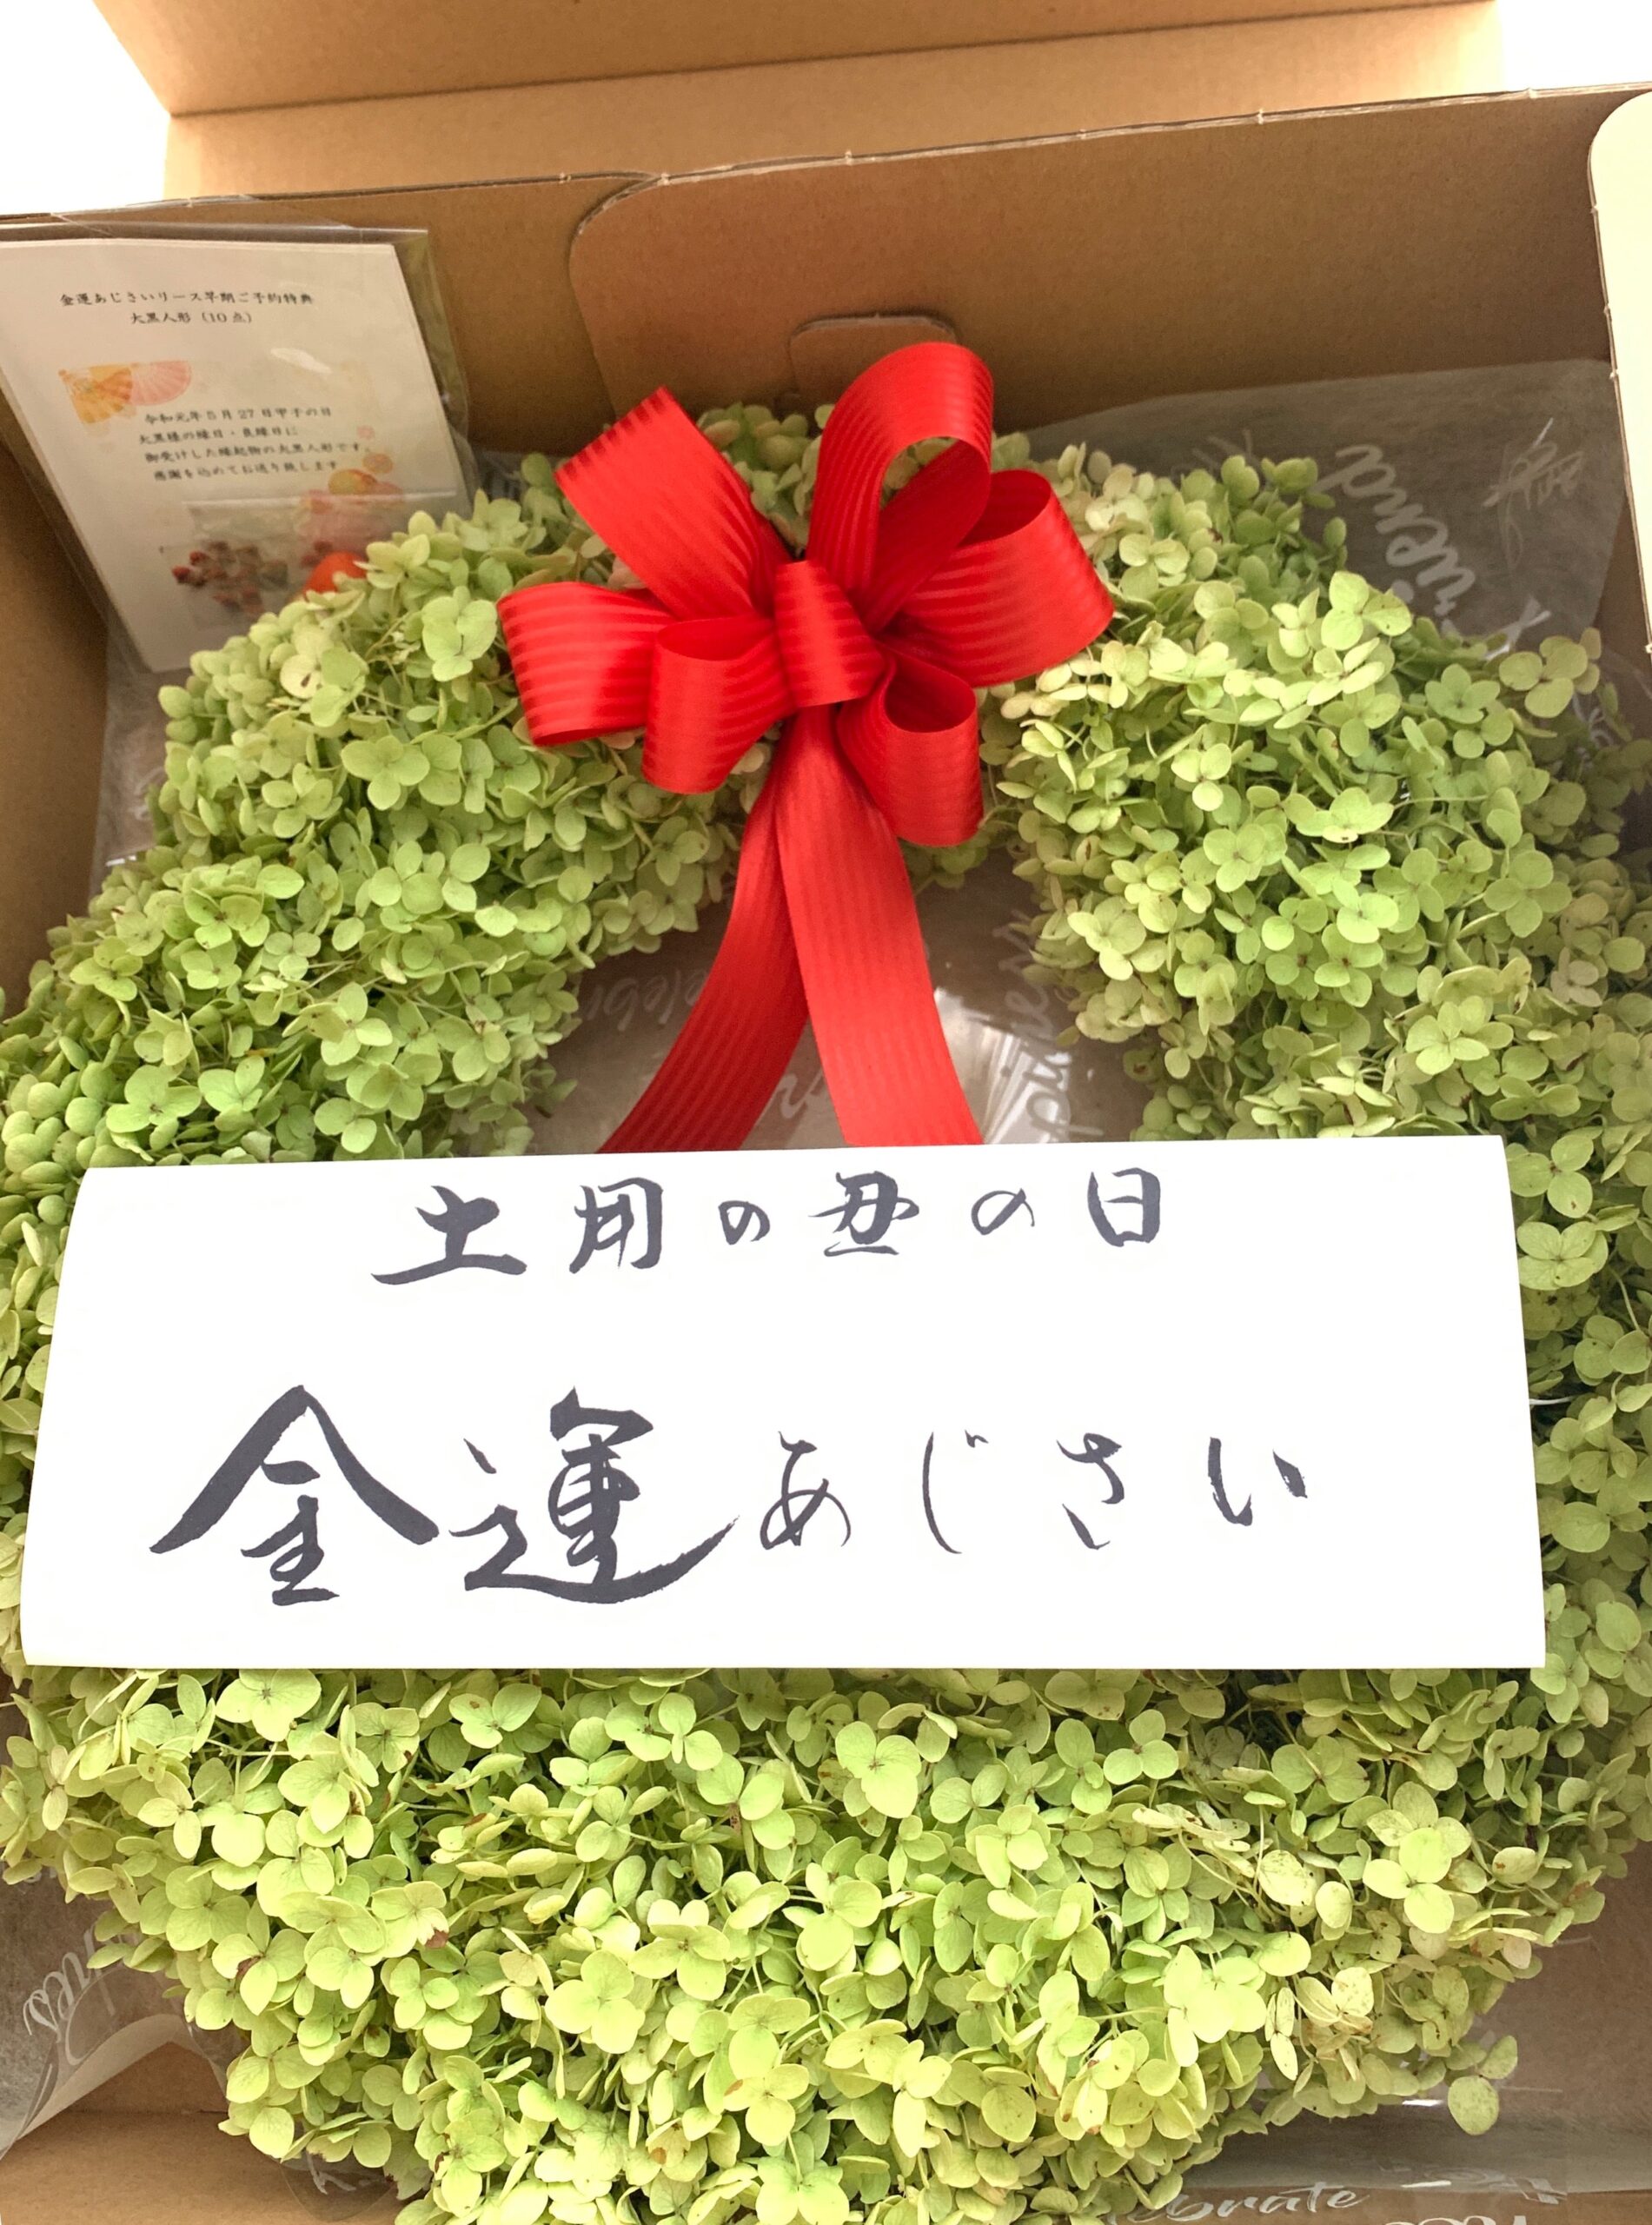 金運あじさいリース早期ご予約特典
大黒人形(10点)
令和元年5月27日甲子の日
大黒様の縁日・良縁日に
御受けした縁起物の大黒人形です。
感謝を込めてお送り致します
土用の丑の日
金運あじさい